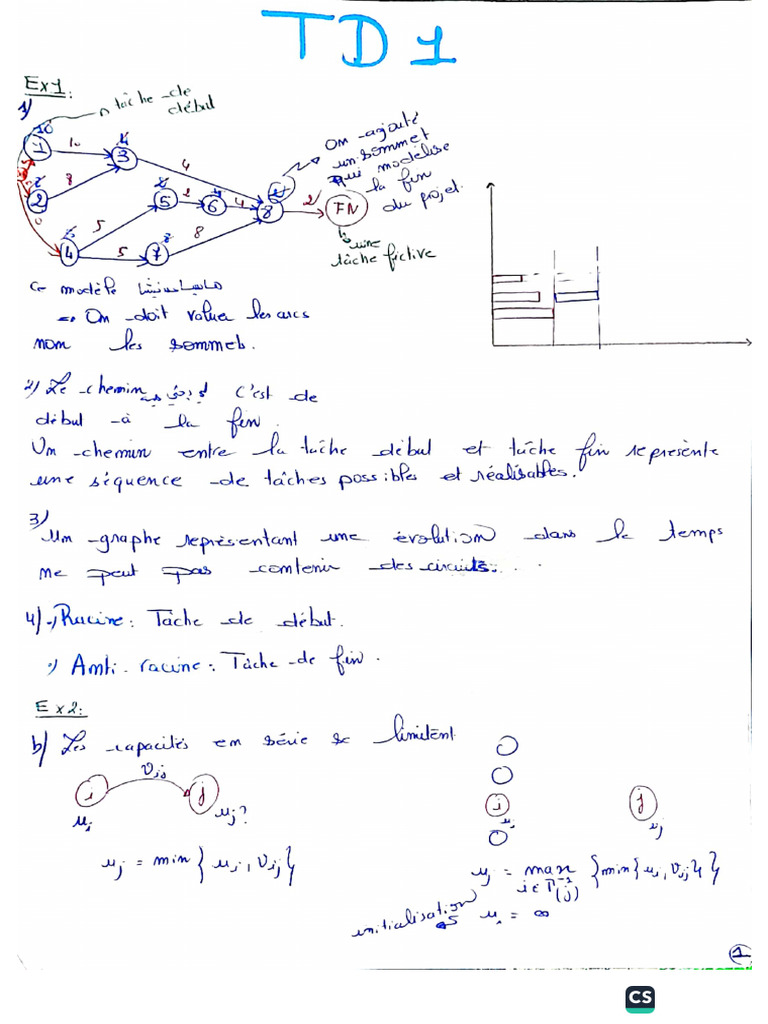 TD1
Ex1:
1)
tâche de
début
On ajouté
un sommet
qui modélise
la fin
du projet.
10
1
10
3
4
2
8
5
2
6
4
8
2
FN
4
5
5
7
8
une
tâche fictive
Ce modèle
=> On doit valuer les arcs
non les sommets.
2) Le chemin c'est de
début à la fin.
Un chemin entre la tâche début et tâche fin représente
une séquence de tâches possibles et réalisables.
3)
Un graphe représentant une évolution dans le temps
ne peut pas contenir des circuits...
4) Racine: Tâche de début.
Anti-racine: Tâche de fin.
Ex2:
b) Les capacités en série se limitent
i vij j
ui uj?
uj = min { ui, vij }
i j
ui uj
uj = max { min{ ui, vij } }
i ∈ Γ⁻¹(j)
initialisation
= ∞
1
CS